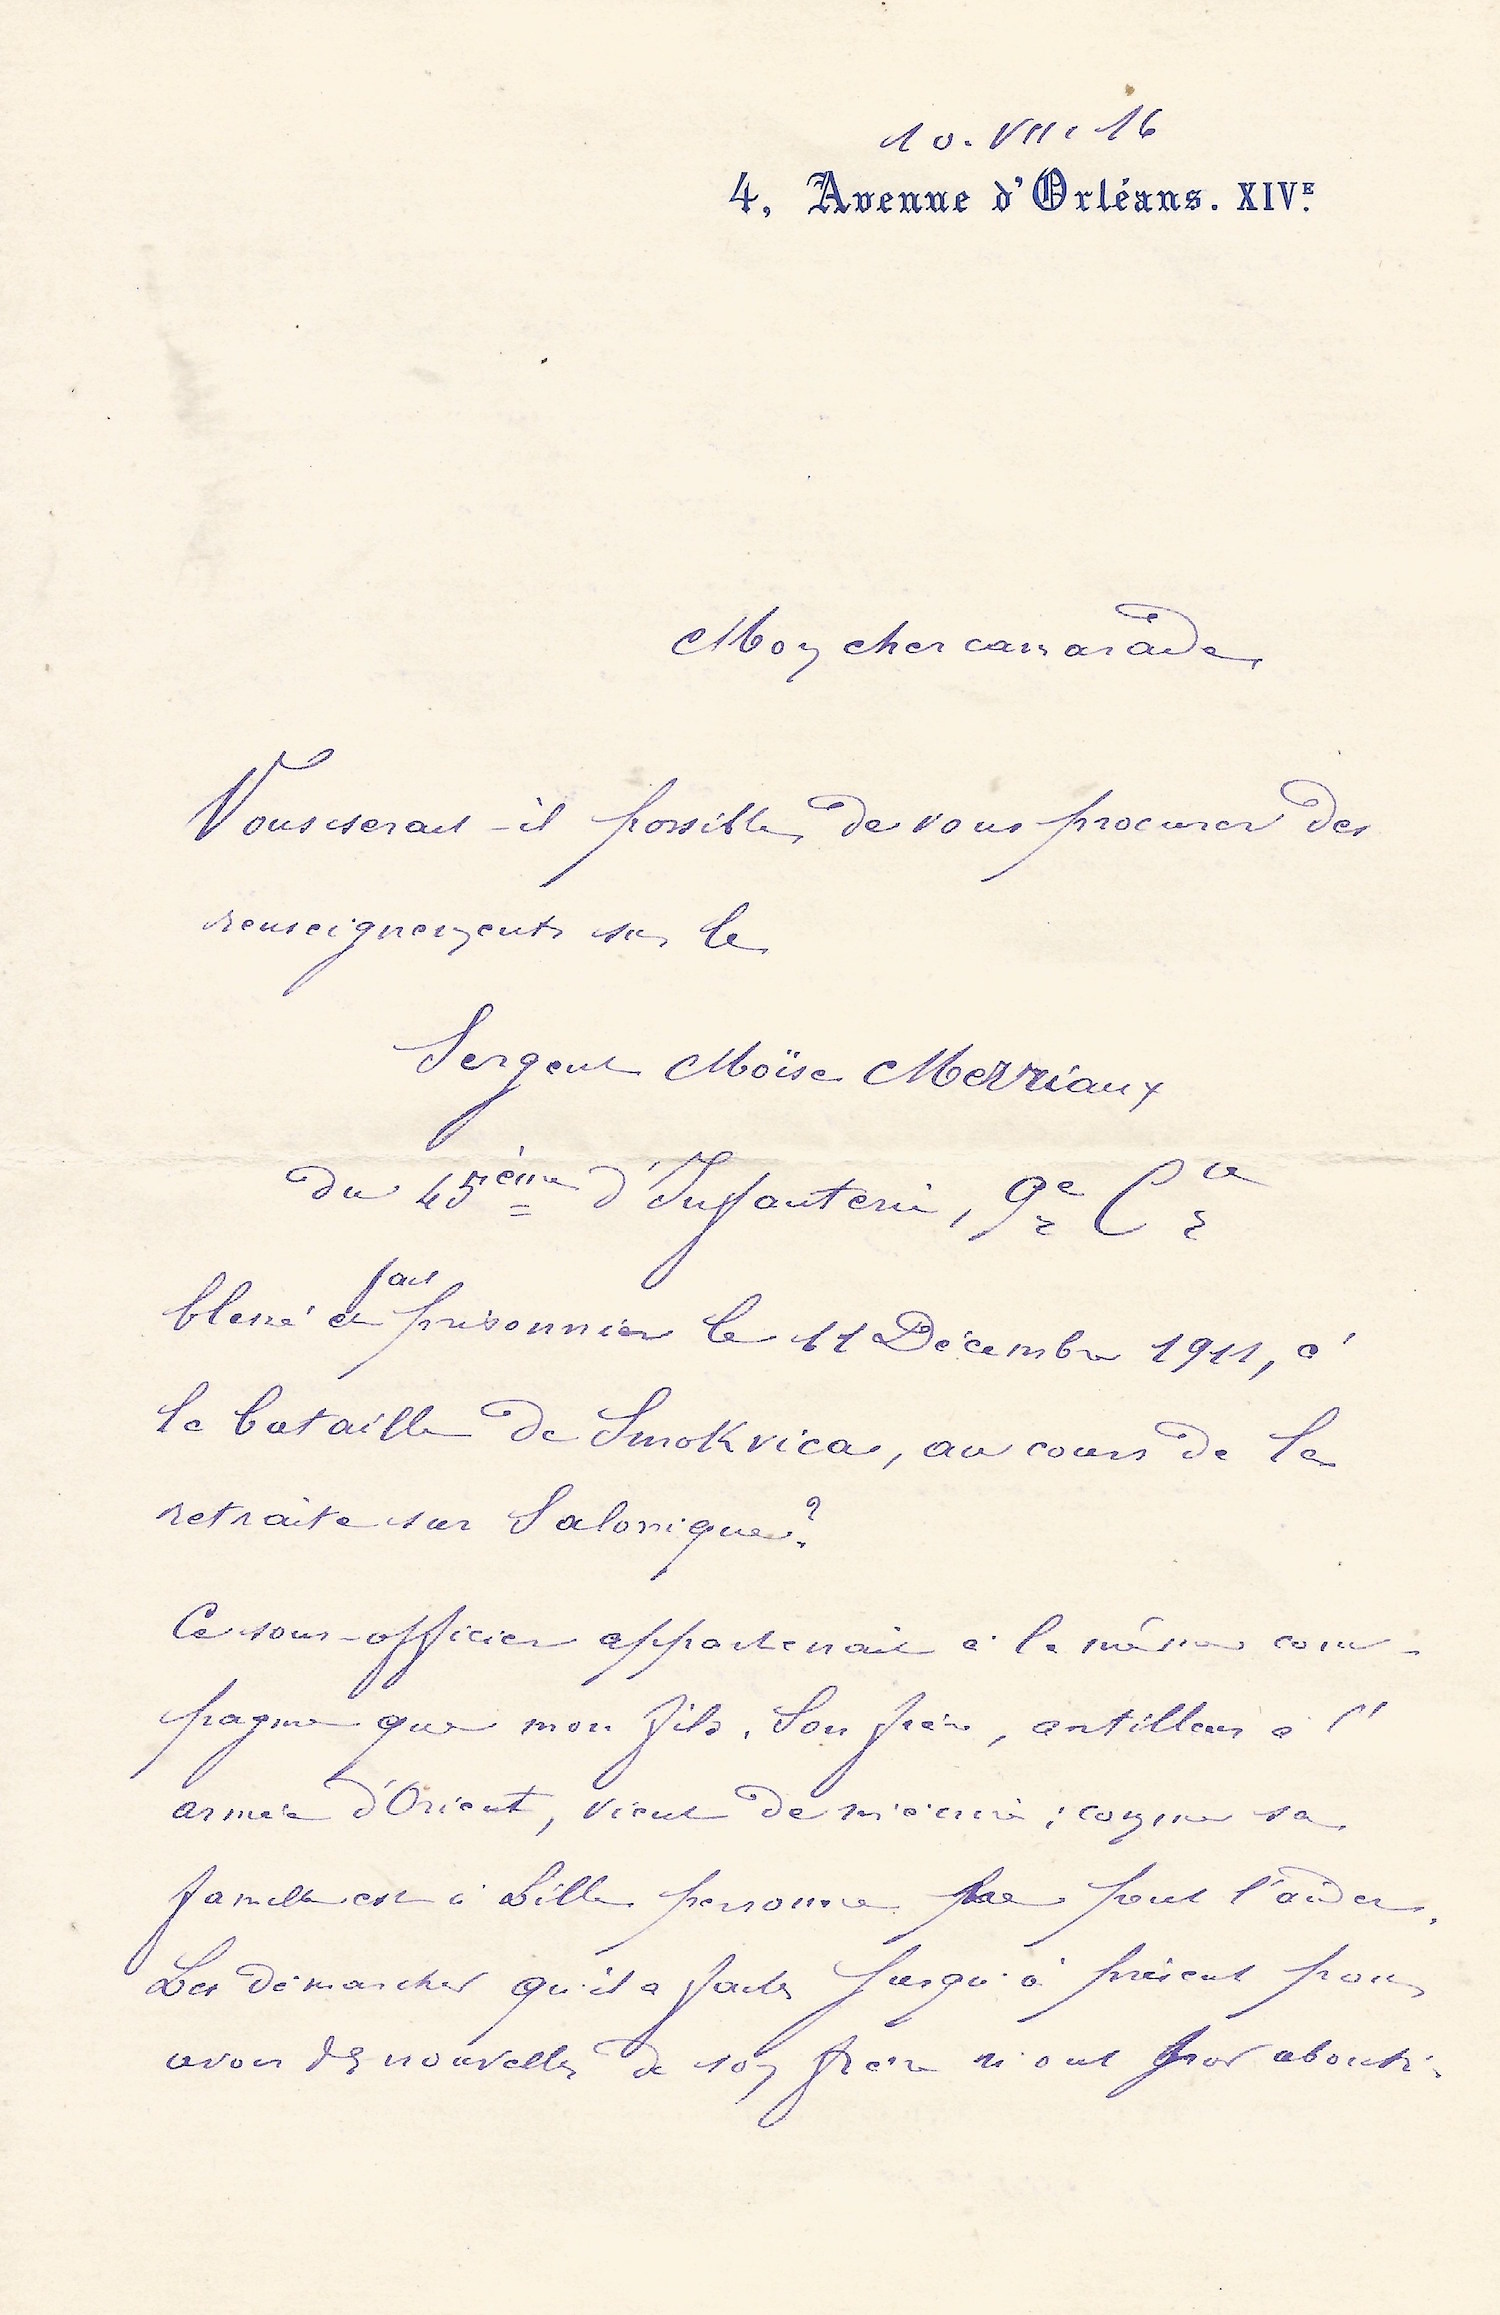 10. VII. 16
4, Avenue d'Orléans. XIVE.
Mon cher camarade
Vous serait-il possible de vous procurer des
renseignements sur le
Sergent Moïse Merriaux
du 45ème d'Infanterie, 9e Cie
fait
blessé et prisonnier le 11 Décembre 1911, à
la bataille de Smokvica, au cours de la
retraite sur Salonique?
Ce sous-officier appartenait à la même com-
pagnie que mon fils. Son frère, artilleur à l'
armée d'Orient, vient de m'écrire; comme sa
famille est à Lille personne ne peut l'aider.
Les démarches qu'il a faites jusqu'à présent pour
avoir des nouvelles de son frère n'ont pas abouti.